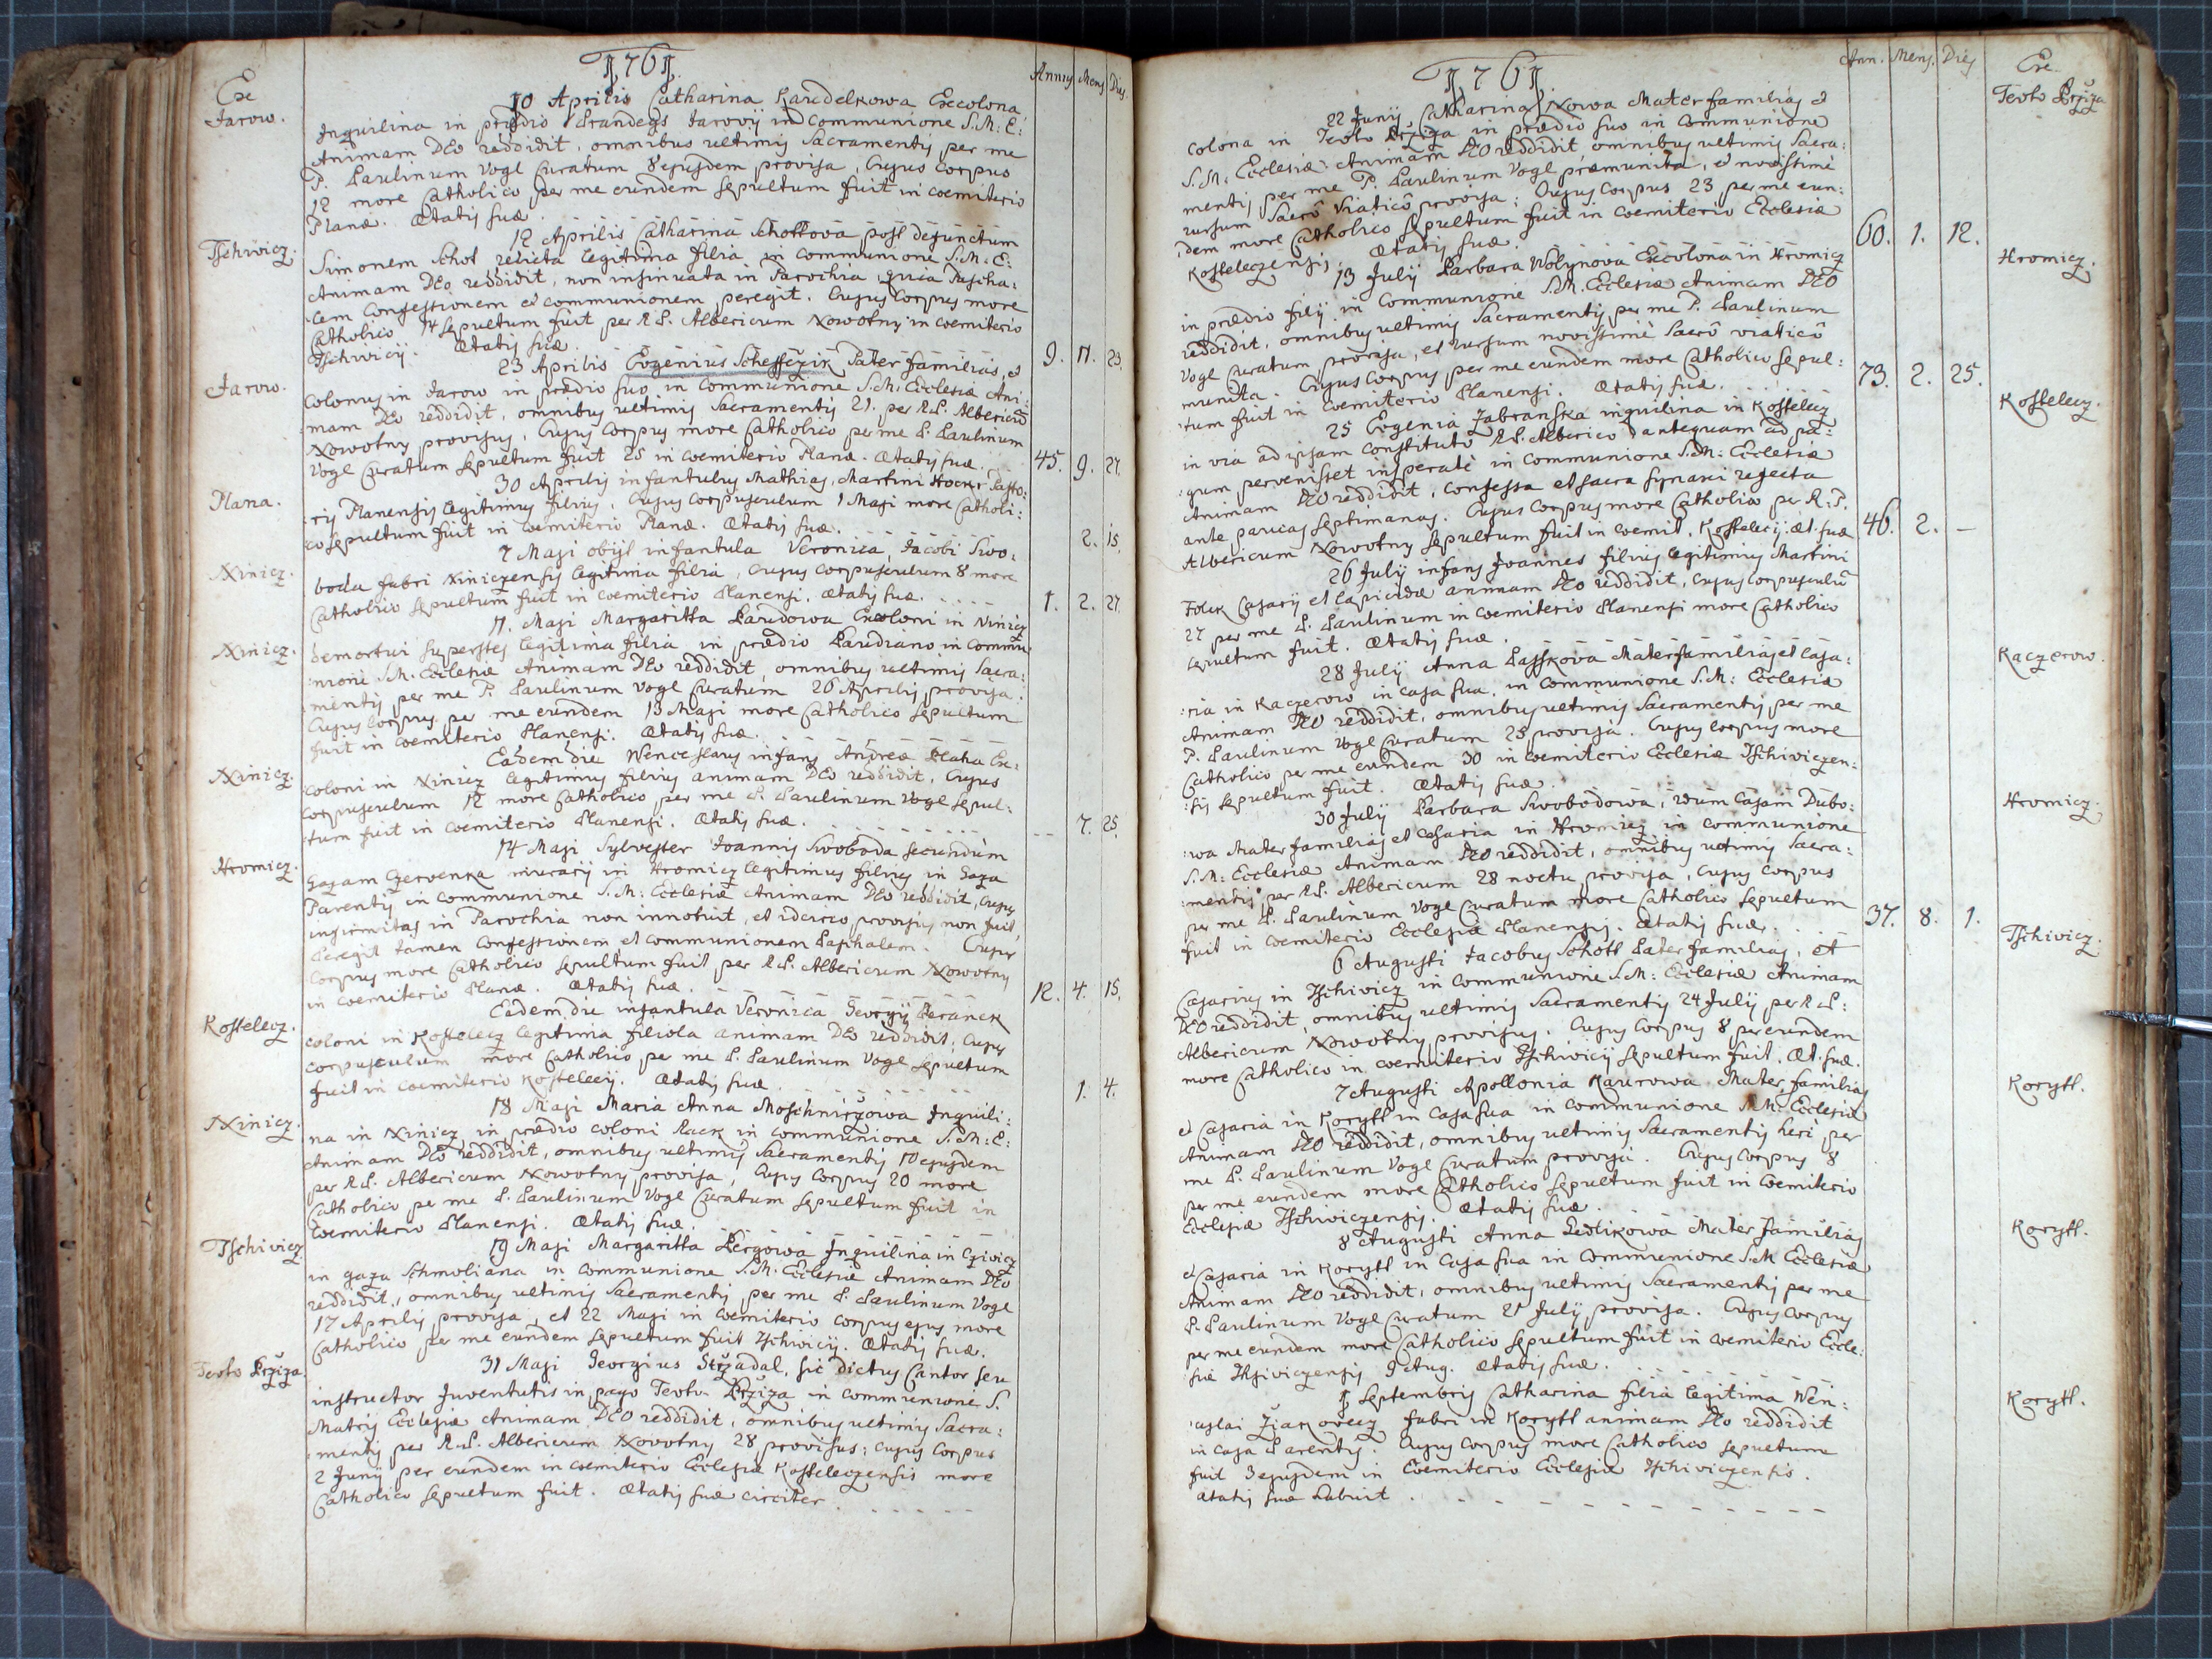 1761.
Annus Mens. Dies.
Exe
Jarow.
10 Aprilis Catharina Kaudelkowa Excolona,
Inquilina in prædio Brandegs Jarovij in Communione S: M: E:
Animam DEo reddidit, omnibus ultimis Sacramentis per me
P. Paulinum Vogl Curatum 8 ejusdem provisa, Cujus Corpus
12 more Catholico per me eundem sepultum fuit in coemiterio
Planæ. Ætatis suæ.
Tschiwicz.
12 Aprilis Catharina Schottova post defunctum
Simonem Schot relicta legitima filia in communione S: M: E:
Animam DEo reddidit, non insinuata in Parochia, quia Pascha:
:lem Confessionem et communionem peregit. Cujus Corpus more
Catholico 14 sepultum fuit per R P. Albericum Nowotny in coemiterio
Tschiwicij. Ætatis suæ. 9. 11. 23.
Jarow.
23 Aprilis Evgenius Scheffczik Pater familias, et
Colonus in Jarow in prædio suo in Communione S. M. Ecclesiæ Ani:
:mam DEo reddidit, omnibus ultimis Sacramentis 21. per R P. Albericũ
Nowotny provisus, Cujus Corpus more Catholico per me P. Paulinum
Vogl Curatum sepultum fuit 25 in coemiterio Planæ. Ætatis suæ. 45. 9. 27.
Plana.
30 Aprilis infantulus Mathias, Martini Hocker Pasto:
:ris Planensis legitimus filius, Cujus Corpusculum 1 Maji more Catholi:
:co sepultum fuit in coemiterio Planæ. Ætatis suæ. 2. 15.
Ninicz.
7 Maji obijt infantula Veronica, Jacobi Swo:
boda fabri Niniczensis legitima filia, Cujus Corpusculum 8 more
Catholico sepultum fuit in coemiterio Planensi. Ætatis suæ. 1. 2. 27.
Ninicz.
11. Maji Margaritta Paudowa Excoloni in Ninicz
demortui superstes legitima filia in prædio Paudiano in Commu
:nione S. M. Ecclesiæ Animam DEo reddidit, omnibus ultimis Sacra:
:mentis per me P. Paulinum Vogl Curatum 26 Aprilis provisa.
Cujus Corpus per me eundem 13 Maji more Catholico sepultum
fuit in coemiterio Planensi. Ætatis suæ.
Ninicz.
Eadem die Wenceslaus infans Andreæ Blaha Ex:
:coloni in Ninicz legitimus filius animam DEo reddidit, Cujus
Corpusculum 12 more Catholico per me P. Paulinum Vogl sepul:
:tum fuit in coemiterio Planensi. Ætatis suæ. 7. 25.
Hromicz.
14 Maji Sylvester Joannis Swoboda secundùm
Gazam Czervenka murarij in Hromicz legitimus filius in Gaza
Parentis in communione S. M: Ecclesiæ Animam DEo reddidit, Cujus
infirmitas in Parochia non innotuit, et idcirco provisus non fuit,
Peregit tamen Confessionem et communionem Paschalem. Cujus
Corpus more Catholico sepultum fuit per R P. Albericum Nowotny
in coemiterio Planæ. Ætatis suæ. 12. 4. 15.
Kostelecz.
Eadem die infantula Veronica Georgij Beranek
coloni in Kostelecz legitima filiola animam DEo reddidit, Cujus
corpusculum more Catholico per me P. Paulinum Vogl sepultum
fuit in coemiterio Kostelecij. Ætatis suæ. 1. 4.
Ninicz.
18 Maji Maria Anna Moschniczowa Inquili:
na in Ninicz in prædio coloni Rack in communione S. M: E:
Animam DEo reddidit, omnibus ultimis Sacramentis 10 ejusdem
per R P. Albericum Nowotny provisa, Cujus Corpus 20 more
Catholico per me P. Paulinum Vogl Curatum sepultum fuit in
coemiterio Planensi. Ætatis suæ.
Tschivicz
19 Maji Margaritta Bergowa Inquilina in Czivicz
in gaza Schmoliana in communione S. M. Ecclesiæ Animam DEo
reddidit, omnibus ultimis Sacramentis per me P. Paulinum Vogl
17 Aprilis provisa, et 22 Maji in coemiterio corpus ejus more
Catholico per me eundem sepultum fuit Tschivicij. Ætatis suæ.
Teoto Brziza
31 Maji Georgius Strzadal, sic dictus Cantor seu
instructor Juventutis in pago Teoto Brziza in communione S.
Matris Ecclesiæ Animam DEO reddidit, omnibus ultimis Sacra:
:mentis per R P. Albericum Nowotny 28 provisus; cujus Corpus
2 Junij per eundem in coemiterio Ecclesiæ Kosteleczensis more
Catholico sepultum fuit. Ætatis suæ circiter
1761.
Ann. Mens. Dies
Exe.
Teoto Brziza
22 Junij Catharina Nowa Materfamilias et
Colona in Teoto Brziza in prædio suo in communione
S. M. Ecclesiæ Animam DEO reddidit omnibus ultimis Sacra:
mentis per me P. Paulinum Vogl præmunita, et novissimè
rursum Sacrô Viaticô provisa; Cujus Corpus 23 per me eun:
:dem more Catholico sepultum fuit in coemiterio Ecclesiæ
Kosteleczensis. Ætatis suæ. 60. 1. 12.
Hromicz.
13 Julij Barbara Wolynova Excolona in Hromicz
in prædio filij in Communione S. M. Ecclesiæ Animam DEO
reddidit, omnibus ultimis Sacramentis per me P. Paulinum
Vogl Curatum provisa, et rursum novissimè Sacrô viaticô
munita. Cujus Corpus per me eundem more Catholico sepul:
:tum fuit in coemiterio Planensi. Ætatis suæ. 73. 2. 25.
Kostelecz.
25 Evgenia Zabranska inquilina in Kostelecz
in via ad ipsam constitutô R P. Alberico antequam ad pa:
:gum pervenisset insperatè in communione S. M: Ecclesiæ
Animam DEO reddidit, confessa et sacra synaxi refecta
ante paucas septimanas. Cujus Corpus more Catholico per R. P.
Albericum Nowotny sepultum fuit in coemit. Kostelecij. æt. suæ 46. 2. —
26 Julij infans Joannes filius legitimus Martini
Folck Casarij et lapicidæ animam DEo reddidit, cujus Corpusculũ
27 per me P. Paulinum in coemiterio Planensi more Catholico
sepultum fuit. Ætatis suæ.
Kaczerow.
28 Julij Anna Passkova Materfamilias et Casa:
:ria in Kaczerow in casa sua, in communione S. M: Ecclesiæ
Animam DEO reddidit, omnibus ultimis Sacramentis per me
P. Paulinum Vogl Curatum 25 provisa. Cujus Corpus more
Catholico per me eundem 30 in coemiterio Ecclesiæ Tschiviczen:
:sis sepultum fuit. Ætatis suæ.
Hromicz.
30 Julij Barbara Swobodowa, juxta Casam Dubo:
:wa Mater familias et Casaria in Hromicz in communione
S. M: Ecclesiæ Animam DEO reddidit, omnibus ultimis Sacra:
:mentis per R P. Albericum 28 noctu provisa, Cujus Corpus
per me P. Paulinum Vogl Curatum more Catholico sepultum
fuit in coemiterio Ecclesiæ Planensis. Ætatis suæ. 37. 8. 1.
Tschivicz.
6 Augusti Jacobus Schott Pater familias, et
Casarius in Tschivicz in communione S. M: Ecclesiæ Animam
DEO reddidit, omnibus ultimis Sacramentis 24 Julij per R P:
Albericum Nowotny provisus. Cujus Corpus 8 per eundem
more Catholico in coemiterio Tschivicij sepultum fuit. Æt. suæ.
Korytt.
7 Augusti Apollonia Kaurowa Mater familias
et Casaria in Korytt in casa sua in communione S. M: Ecclesiæ
Animam DEO reddidit, omnibus ultimis Sacramentis heri per
me P. Paulinum Vogl Curatum provisa. Cujus Corpus 8
per me eundem more Catholico sepultum fuit in coemiterio
Ecclesiæ Tschiviczensis. Ætatis suæ.
Korytt.
8 Augusti Anna Zedlikowa Mater familias
et Casaria in Korytt in Casa sua in communione S. M Ecclesiæ
Animam DEO reddidit, omnibus ultimis Sacramentis per me
P. Paulinum Vogl Curatum 21 Julij provisa. Cujus Corpus
per me eundem more Catholico sepultum fuit in coemiterio Eccle:
:siæ Tschiviczensis 9 Aug. Ætatis suæ.
Korytt.
1 Septembris Catharina filia legitima Wen:
:ceslai Ziakovecz fabri in Korytt animam DEo reddidit
in casa Parentis. Cujus Corpus more Catholico sepultum
fuit 3 ejusdem in Coemiterio Ecclesiæ Tschiviczensis.
Ætatis suæ habuit